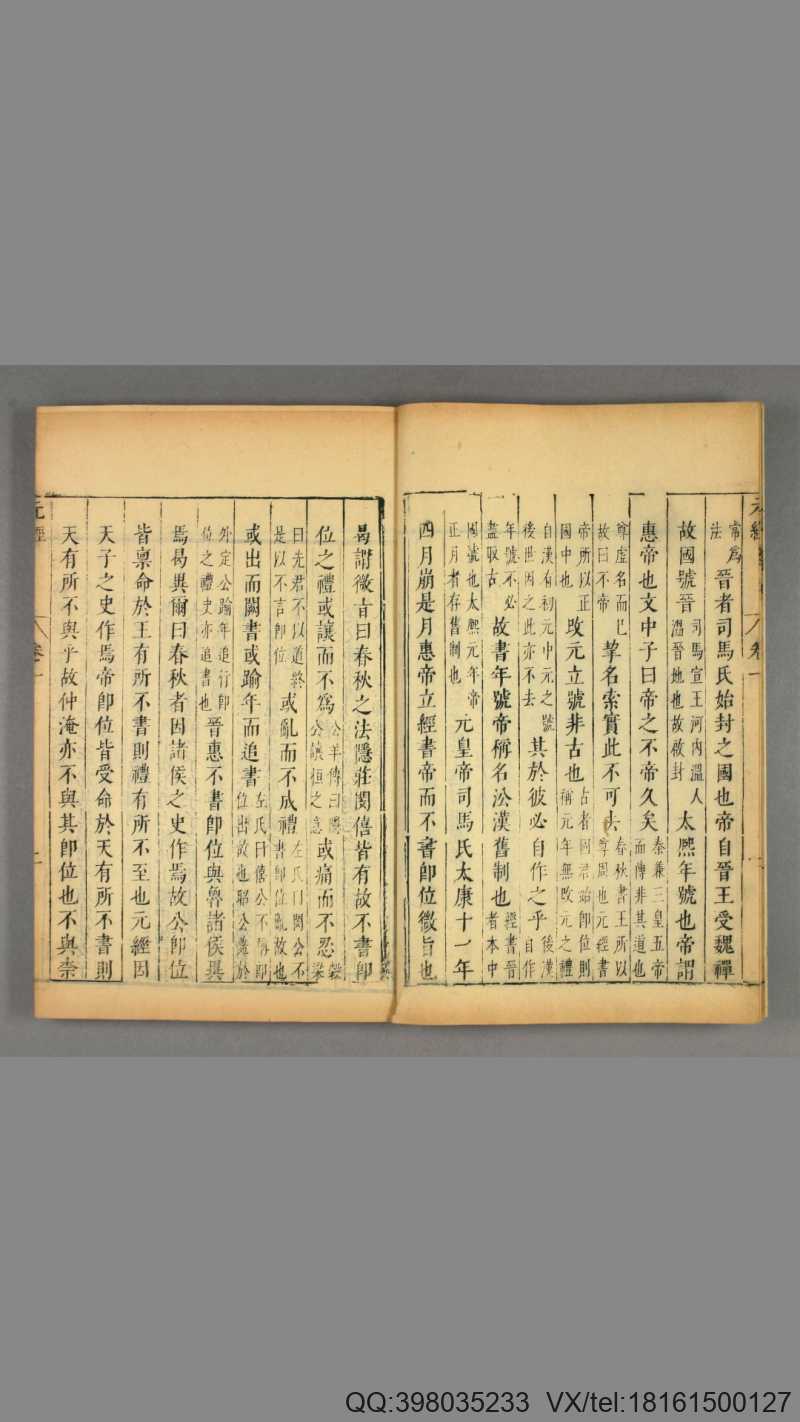 元經
卷一
常爲晉者司馬氏始封之國也帝自晉王受魏禪
法
故國號晉司馬宣王河内溫人太熈年號也帝謂
溫晉地也故啟封
惠帝也文中子曰帝之不帝久矣秦兼三皇五帝
而傳非其道也
尊虛名而已苐名索實此不可去春秋書王所以
故曰不帝
尊周也元經書
帝所以正改元立號非古也古者國君始即位則
國中也
稱元年無改元之禮
自漢有初元中元之號其於彼必自作之乎後漢
後世因之此亦不去
自作
年號不必故書年號帝稱名㳂漢舊制也經書晉
盡取古
者本中
國號也太熈元年帝元皇帝司馬氏太康十一年
正月者存舊制也
四月崩是月惠帝立經書帝而不書即位徵旨也
曷謂徵旨曰春秋之法隱莊閔僖皆有故不書即
位之禮或讓而不爲公羊傳曰隱或痛而不忍
公
桓之意
曰先君不以道終或亂而不成禮左氏曰閔公不
是以不言即位
書即位亂故也
或出而闕書或踰年而追書左氏曰僖公不書即
位出故也昭公薨於
外定公踰年追行即晉惠不書即位與魯諸侯異
位之禮史亦追書也
焉曷異爾曰春秋者因諸侯之史作焉故公即位
皆稟命於王有所不書則禮有所不至也元經因
天子之史作焉帝即位皆受命於天有所不書則
天有所不與乎故仲淹亦不與其即位也不與柰
元經
卷一
QQ:398035233 VX/tel:18161500127